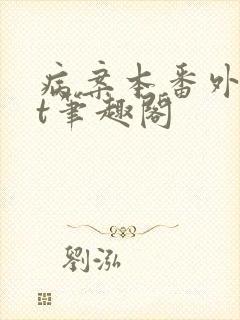 病案本番外
t笔趣阁
劉泓